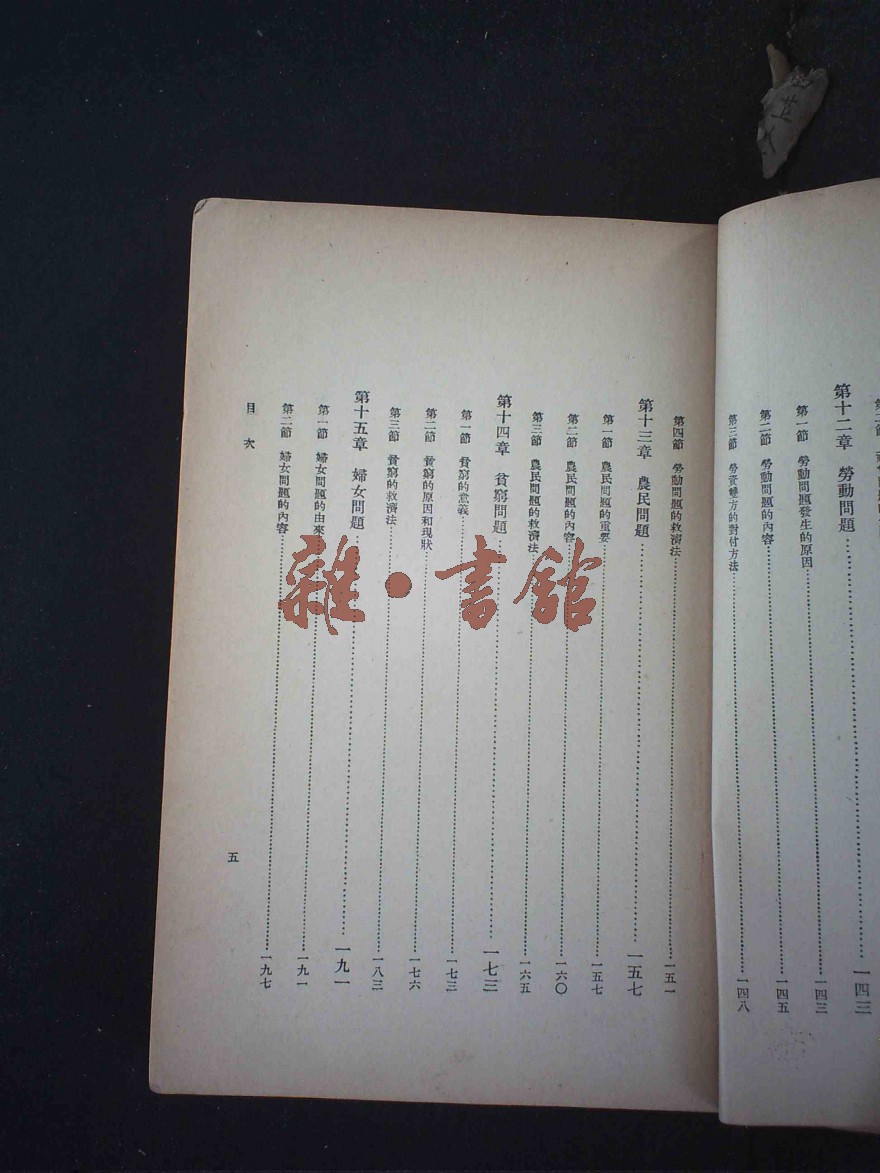 第十二章　勞動問題……一四三
第一節　勞動問題發生的原因……一四三
第二節　勞動問題的內容……一四五
第三節　勞資雙方的對付方法……一四八
第四節　勞動問題的救濟法……一五一
第十三章　農民問題……一五七
第一節　農民問題的重要……一五七
第二節　農民問題的內容……一六〇
第三節　農民問題的救濟法……一六五
第十四章　貧窮問題……一七三
第一節　貧窮的意義……一七三
第二節　貧窮的原因和現狀……一七六
第三節　貧窮的救濟法……一八三
第十五章　婦女問題……一九一
第一節　婦女問題的由來……一九一
第二節　婦女問題的內容……一九七
目次
五
雜・書館